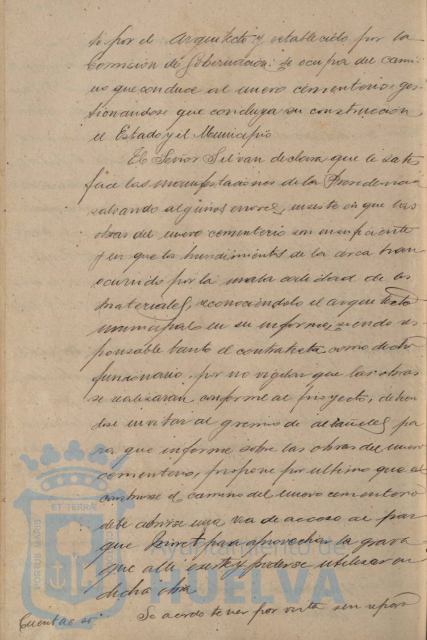 to por el Arquitecto y establecido por la
Comisión de Gobernación: se ocupa del cami-
no que conduce al nuevo cementerio ges-
tionandose que concluya su construcción
el Estado y el Municipio
El Señor Silvan declara que le satis
face las manifestaciones de la Presidencia
salvando algunos errores, insiste en que las
obras del nuevo cementerio son insuficientes
y en que los hundimientos de la
por la mala calidad de los
materiales, reconociendolo el arquitecto
municipal en su informe, siendo res-
ponsable tanto el contratista como dicho
funcionario por no vigilar que las obras
se realizaran conforme al proyecto, debien
dose invitar al gremio de albañiles pa
ra que informe sobre las obras del nuevo
cementerio, propone por ultimo que al
construirse el camino del nuevo cementerio
debe abrirse una via de acceso al par
que para aprovechar la grava
que alli existe y poderse utilizar en
dicha obra.
Cuentas
Se acordó tener por vista sin reparo
PORTUS MARIS
ET TERRÆ
Ayuntamiento de
HUELVA